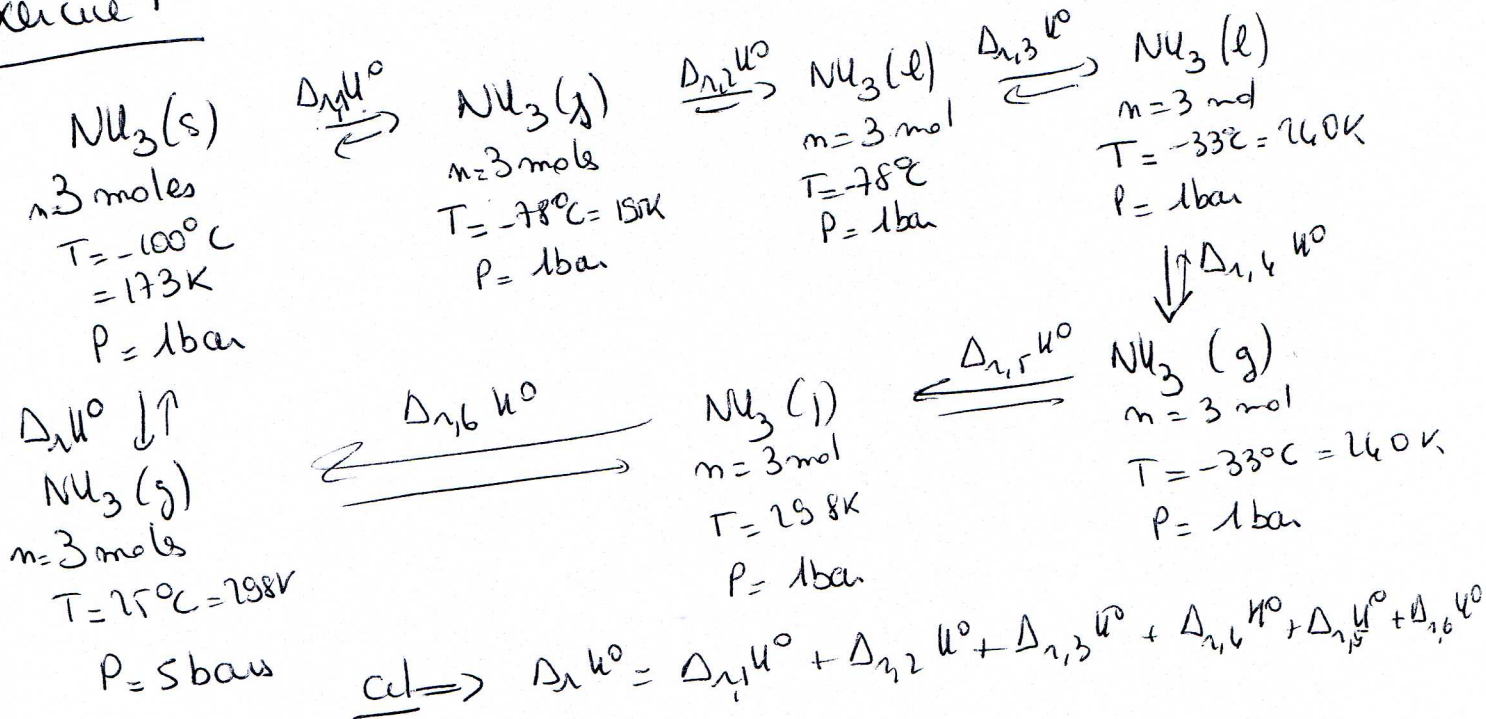 Exercice 1
NH₃(s)
n=3 moles
T = -100°C
= 173K
P = 1bar
Δr,1H°
⇌
NH₃(s)
n=3 moles
T = -78°C = 195K
P = 1bar
Δr,2H°
⇌
NH₃(l)
n=3 mol
T=-78°C
P = 1bar
Δr,3H°
⇌
NH₃(l)
n=3 mol
T = -33°C = 240K
P = 1bar
⇓↑ Δr,4H°
NH₃ (g)
n = 3 mol
T = -33°C = 240K
P = 1bar
Δr,5H°
NH₃ (g)
n = 3 mol
T = 298K
P = 1bar
Δr,6H°
ΔrH° ↓↑
NH₃ (g)
n=3 moles
T=25°C=298K
P=5bars
Ccl ⇒ ΔrH° = Δr,1H° + Δr,2H° + Δr,3H° + Δr,4H° + Δr,5H° + Δr,6H°